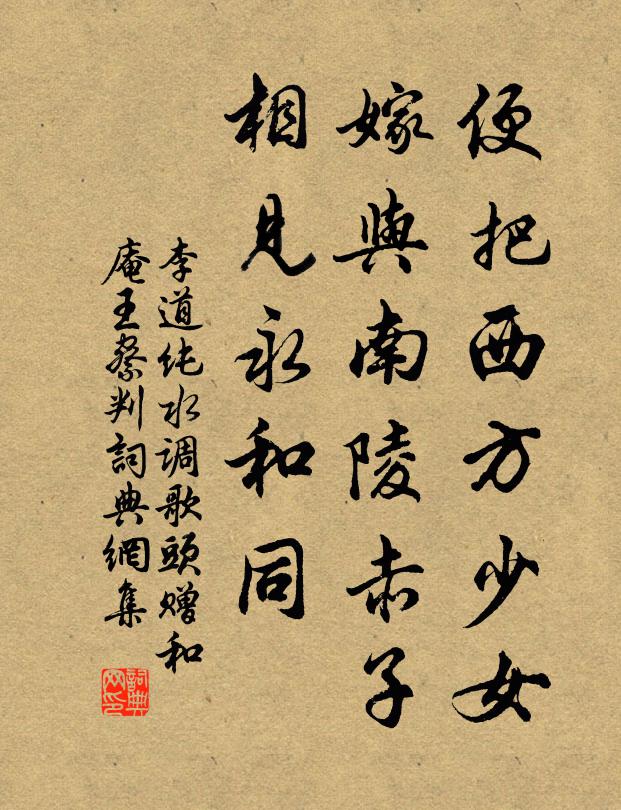 便把西方少女
嫁與南陵赤子
相見永和同
李道纯水调歌頭赠和
庵王祭判詞典網集
詞典网印